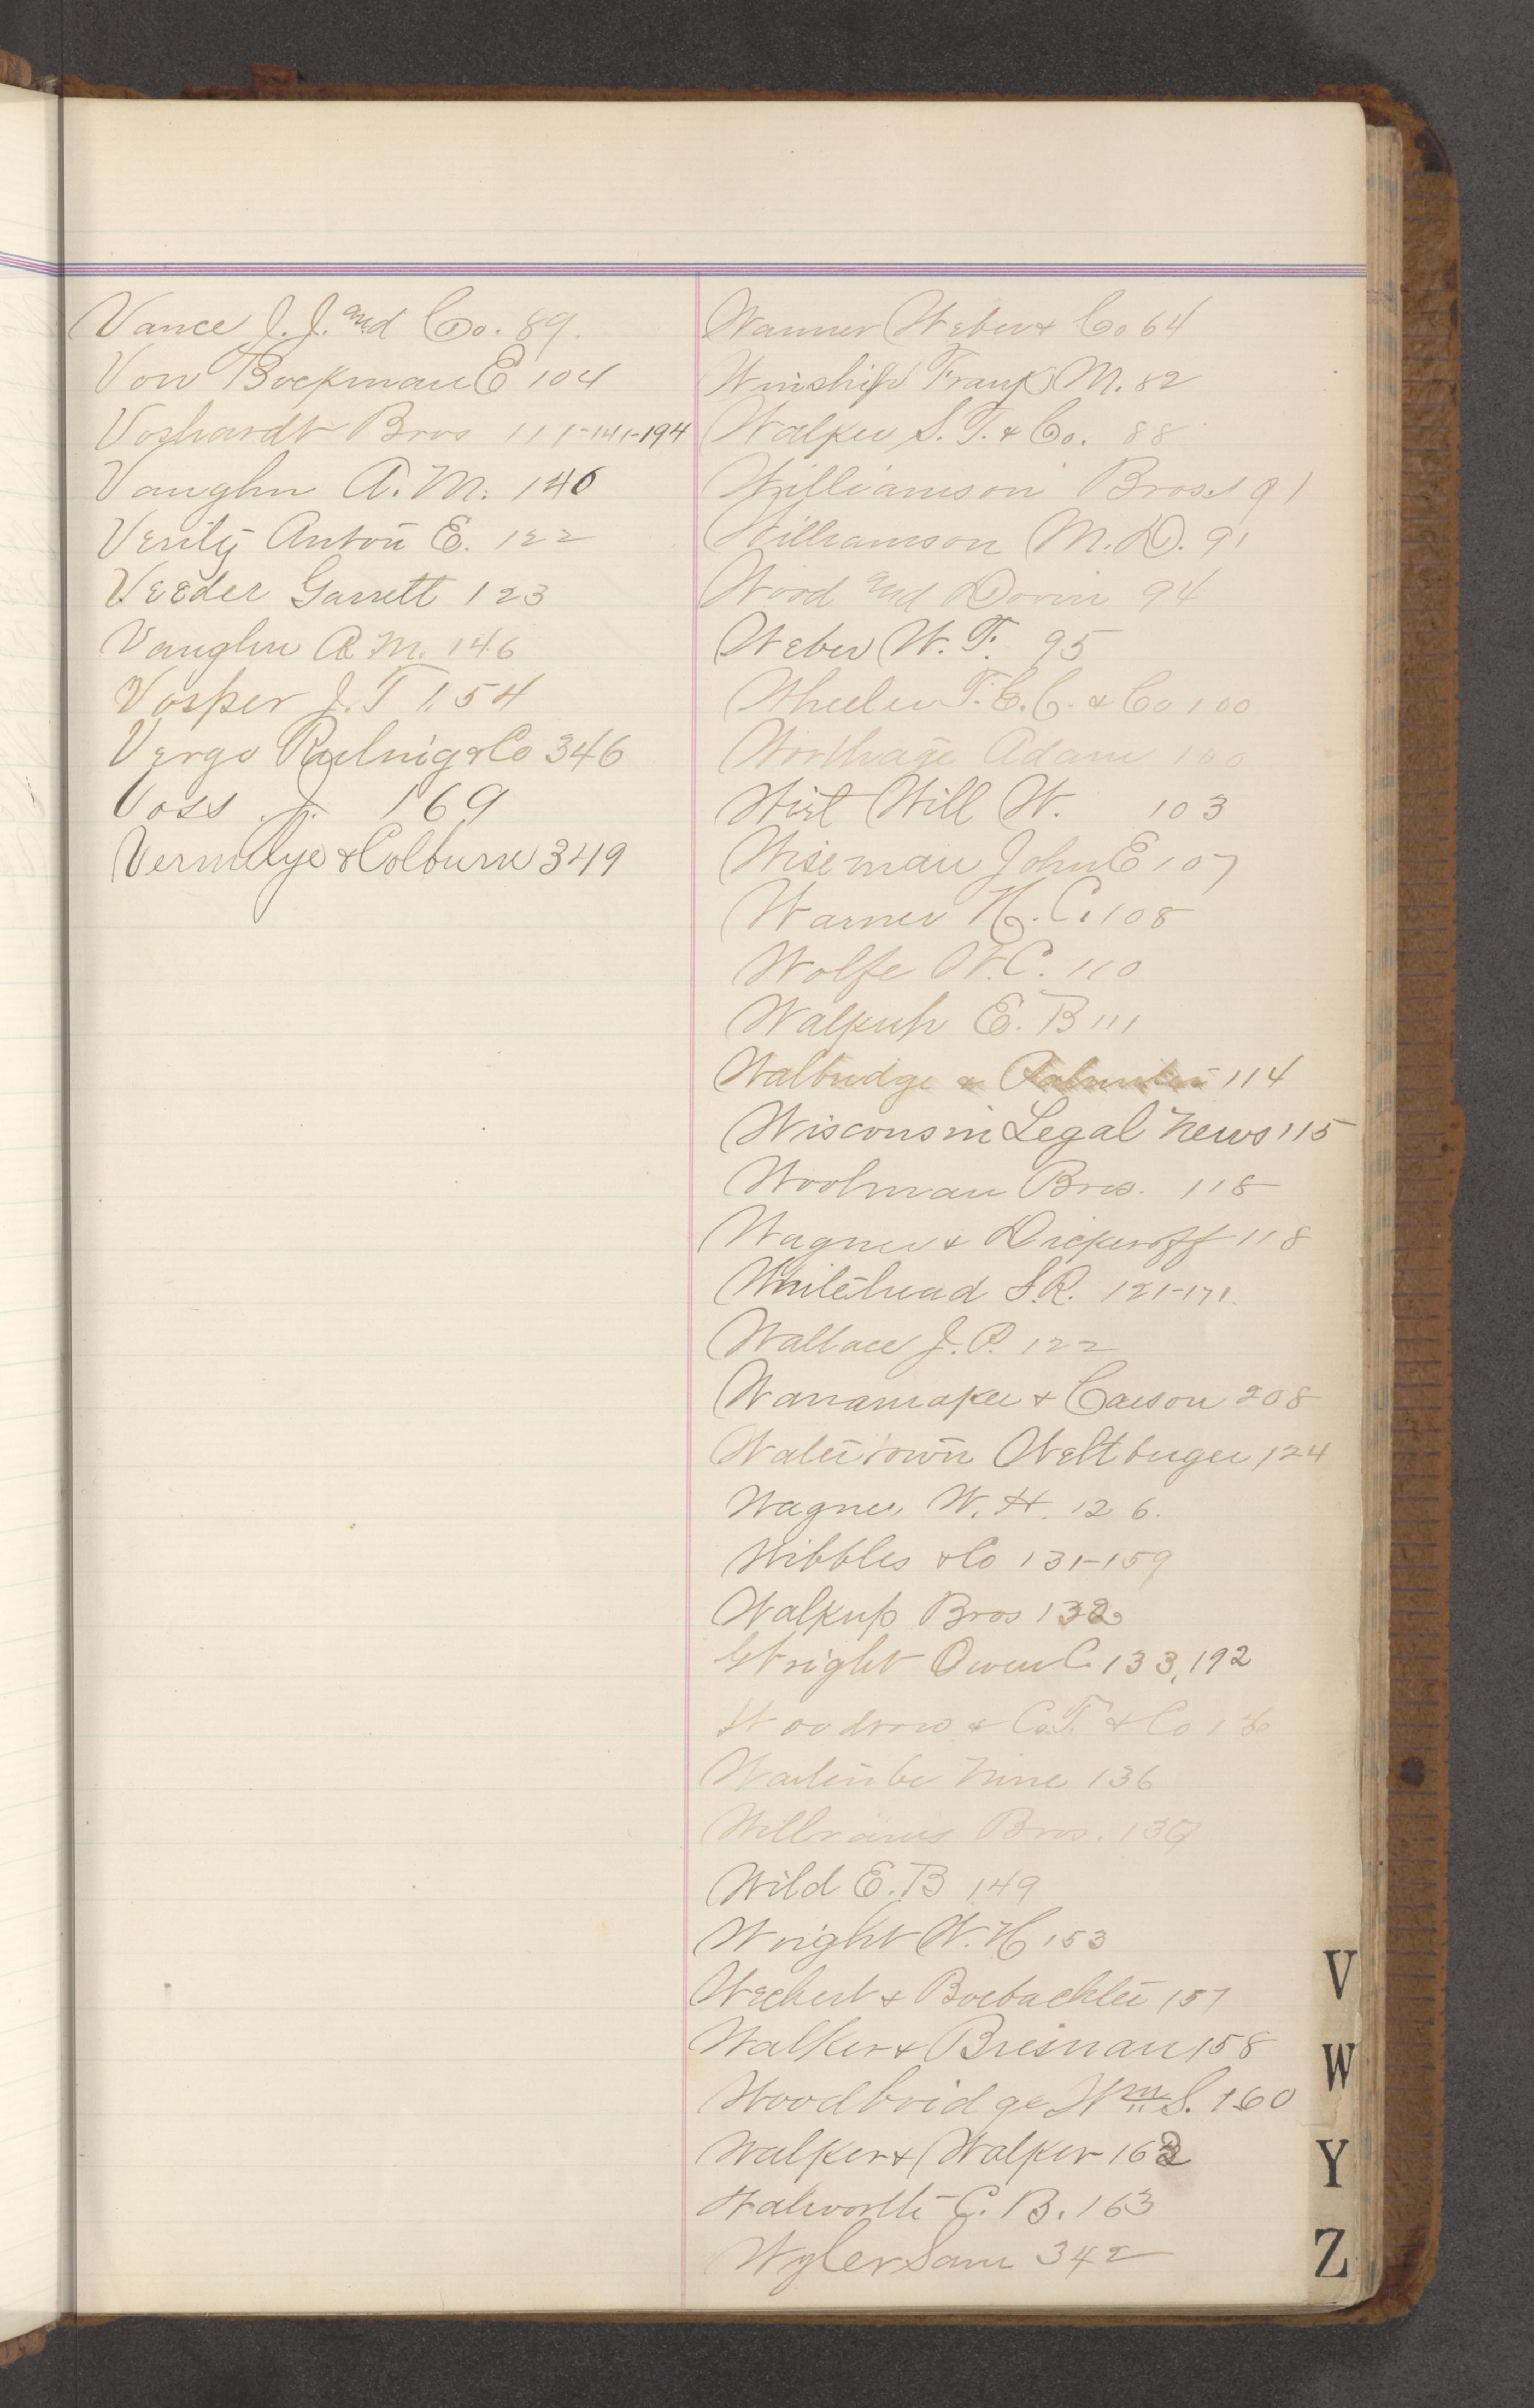 Vance J. J. and Co. 89.
Von Bockman E 104
Voshardt Bros 111-141-194
Vaughn A. M. 146
Verity Anton E. 122
Veeder Garrett 123
Vaughn A M. 146
Vosper J. T 154
Vergo Rulnig & Co 346
Voss J. 169
Vermilye & Colburn 349
Wanner Weber & Co 64
Winship Frank M. 82
Walker S. T. & Co. 88
Williamson Bros. 91
Williamson M. D. 91
Wood and Dorin 94
Weber W. T. 95
Wheeler T. C. C. & Co 100
Adam 100
Wist Will W. 103
Wiseman John E 107
Warner H. C. 108
Wolfe W. C. 110
Walkup E. B 111
Walbridge & 114
Wisconsin Legal News 115
Woolman Bros. 118
Wagner & Diekeroff 118
Whitehead S. R. 121-171.
Wallace J. P. 122
Wanamaker & Carson 208
Watertown Weltburger 124
Wagner W. H. 126.
Wibbles & Co 131-159
Walkup Bros 132
Wright Owen C. 133, 192
Woodrow & Co. T. & Co
Nine 136
Williams Bros.
Wild E. B 149
Wright W. H 153
Weckert & 157
Walker & Bresnan 158
Woodbridge Wm S. 160
Walker & Walker 162
Walworth C. B. 163
Wyler Sam 342
V
W
Y
Z